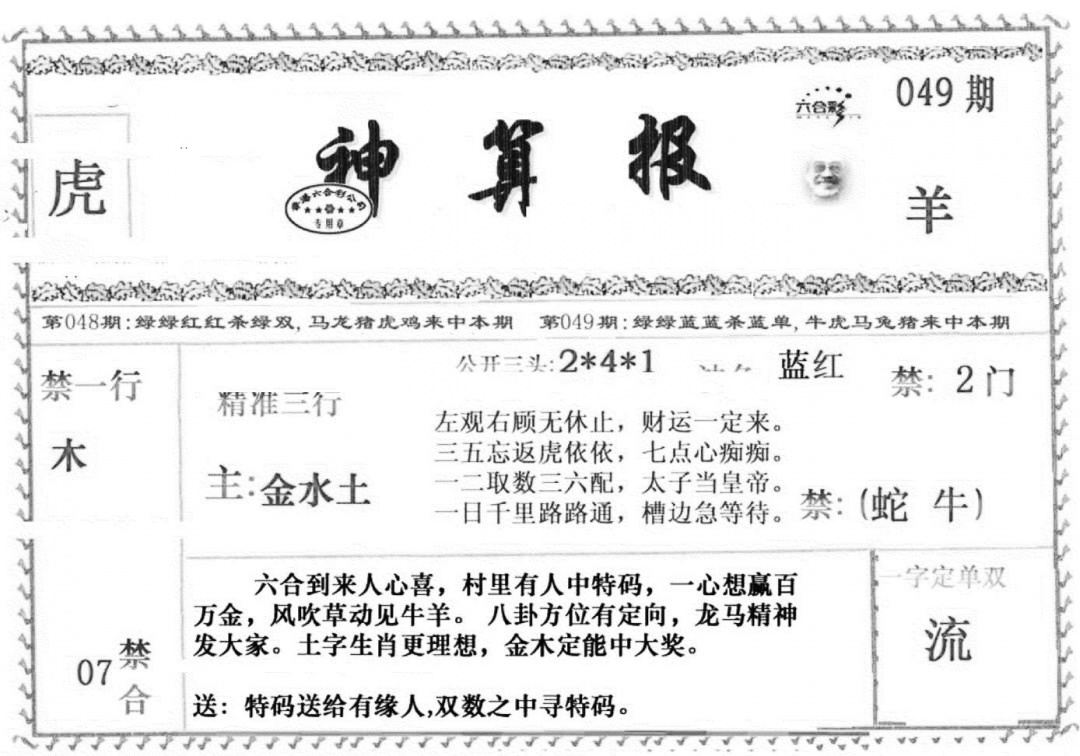 六合彩
049期
神算报
香港六合彩公司
专用章
虎
羊
第048期:绿绿红红杀绿双,马龙猪虎鸡来中本期 第049期:绿绿蓝蓝杀蓝单,牛虎马兔猪来中本期
禁一行
木
精准三行
主:金水土
公开三头:2*4*1
蓝红
禁:2门
左观右顾无休止，财运一定来。
三五忘返虎依依，七点心痴痴。
一二取数三六配，太子当皇帝。
一日千里路路通，槽边急等待。
禁:(蛇 牛)
07
禁合
六合到来人心喜，村里有人中特码，一心想赢百
万金，风吹草动见牛羊。八卦方位有定向，龙马精神
发大家。土字生肖更理想，金木定能中大奖。
送：特码送给有缘人,双数之中寻特码。
一字定单双
流